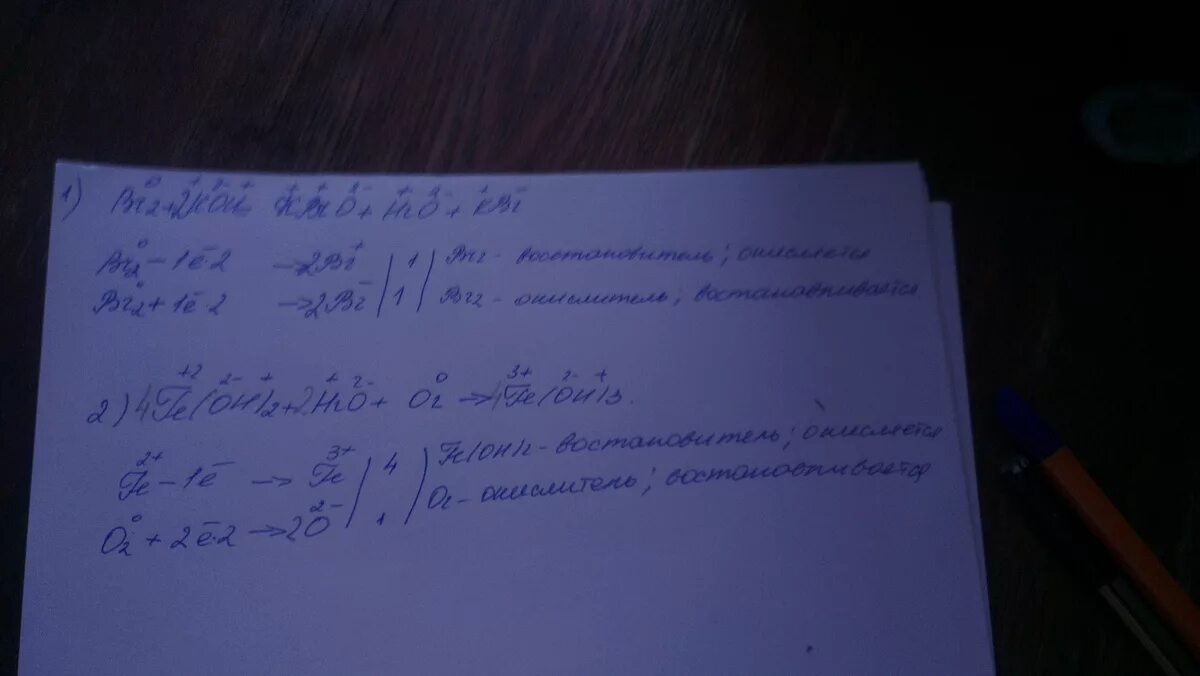 1) Br₂⁰ + 2K⁺O²⁻H⁺ = K⁺Br⁺O²⁻ + H₂⁺O²⁻ + K⁺Br⁻
Br₂⁰ - 1ē·2 → 2Br⁺ | 1 | Br₂ - восстановитель; окисляется
Br₂⁰ + 1ē·2 → 2Br⁻ | 1 | Br₂ - окислитель; востанавливается
2) 4Fe⁺²(O²⁻H⁺)₂ + 2H₂⁺O²⁻ + O₂⁰ → 4Fe³⁺(O²⁻H⁺)3.
Fe²⁺ - 1ē → Fe³⁺ | 4 | Fe(OH)₂ - востановитель; окисляется
O₂⁰ + 2ē·2 → 2O²⁻ | 1 | O₂ - окислитель; востанавливается